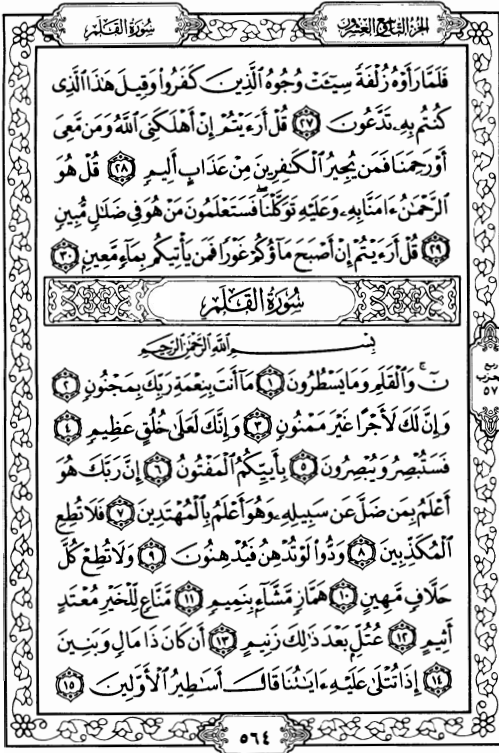 سُورَةُ القَلَمِ
الجُزْءُ التَّاسِعُ وَالعِشْرُونَ
فَلَمَّا رَأَوْهُ زُلْفَةً سِيٓـَٔتْ وُجُوهُ ٱلَّذِينَ كَفَرُوا۟ وَقِيلَ هَٰذَا ٱلَّذِى
كُنتُم بِهِۦ تَدَّعُونَ ٢٧ قُلْ أَرَءَيْتُمْ إِنْ أَهْلَكَنِىَ ٱللَّهُ وَمَن مَّعِىَ
أَوْ رَحِمَنَا فَمَن يُجِيرُ ٱلْكَٰفِرِينَ مِنْ عَذَابٍ أَلِيمٍ ٢٨ قُلْ هُوَ
ٱلرَّحْمَٰنُ ءَامَنَّا بِهِۦ وَعَلَيْهِ تَوَكَّلْنَا ۖ فَسَتَعْلَمُونَ مَنْ هُوَ فِى ضَلَٰلٍ مُّبِينٍ
٢٩ قُلْ أَرَءَيْتُمْ إِنْ أَصْبَحَ مَآؤُكُمْ غَوْرًا فَمَن يَأْتِيكُم بِمَآءٍ مَّعِينٍۭ ٣٠
سُورَةُ القَلَمِ
بِسْمِ ٱللَّهِ ٱلرَّحْمَٰنِ ٱلرَّحِيمِ
نٓ ۚ وَٱلْقَلَمِ وَمَا يَسْطُرُونَ ١ مَآ أَنتَ بِنِعْمَةِ رَبِّكَ بِمَجْنُونٍ ٢
وَإِنَّ لَكَ لَأَجْرًا غَيْرَ مَمْنُونٍ ٣ وَإِنَّكَ لَعَلَىٰ خُلُقٍ عَظِيمٍ ٤
فَسَتُبْصِرُ وَيُبْصِرُونَ ٥ بِأَييِّكُمُ ٱلْمَفْتُونُ ٦ إِنَّ رَبَّكَ هُوَ
أَعْلَمُ بِمَن ضَلَّ عَن سَبِيلِهِۦ وَهُوَ أَعْلَمُ بِٱلْمُهْتَدِينَ ٧ فَلَا تُطِعِ
ٱلْمُكَذِّبِينَ ٨ وَدُّوا۟ لَوْ تُدْهِنُ فَيُدْهِنُونَ ٩ وَلَا تُطِعْ كُلَّ
حَلَّافٍ مَّهِينٍ ١٠ هَمَّازٍ مَّشَّآءٍۭ بِنَمِيمٍ ١١ مَّنَّاعٍ لِّلْخَيْرِ مُعْتَدٍ
أَثِيمٍ ١٢ عُتُلٍّۭ بَعْدَ ذَٰلِكَ زَنِيمٍ ١٣ أَن كَانَ ذَا مَالٍ وَبَنِينَ
١٤ إِذَا تُتْلَىٰ عَلَيْهِ ءَايَٰتُنَا قَالَ أَسَٰطِيرُ ٱلْأَوَّلِينَ ١٥
ربع
حزب
٥٧
٥٦٤